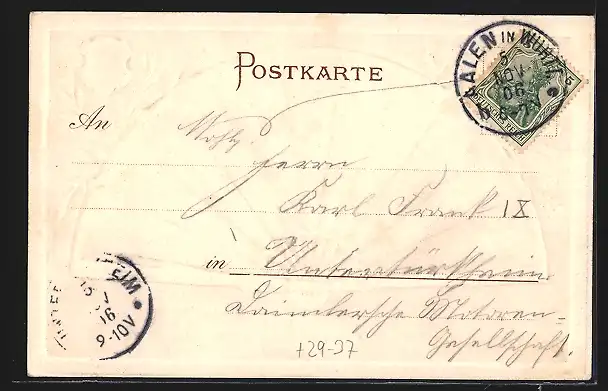 POSTKARTE
AALEN IN WÜRTT.
5
NOV
06
An
Wohlg.
Herrn
Karl Frank IX
in Untertürkheim
Daimlersche Motoren-
Gesellschaft.
EIM
9-10V
+29-37